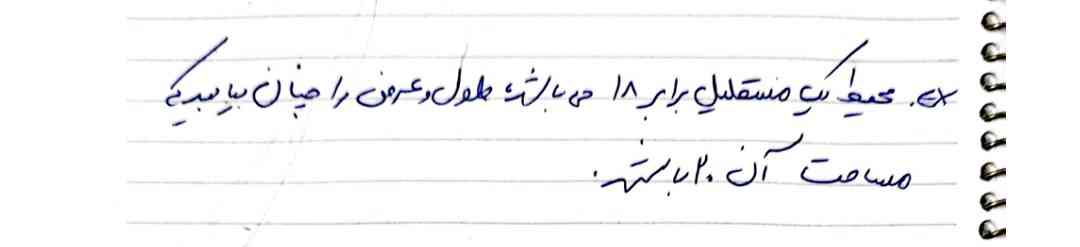 Ex. محیط یک مستطیل برابر ۱۸ می باشد، طول و عرض را چنان بیابید که
مساحت آن ۲۰ باشد.